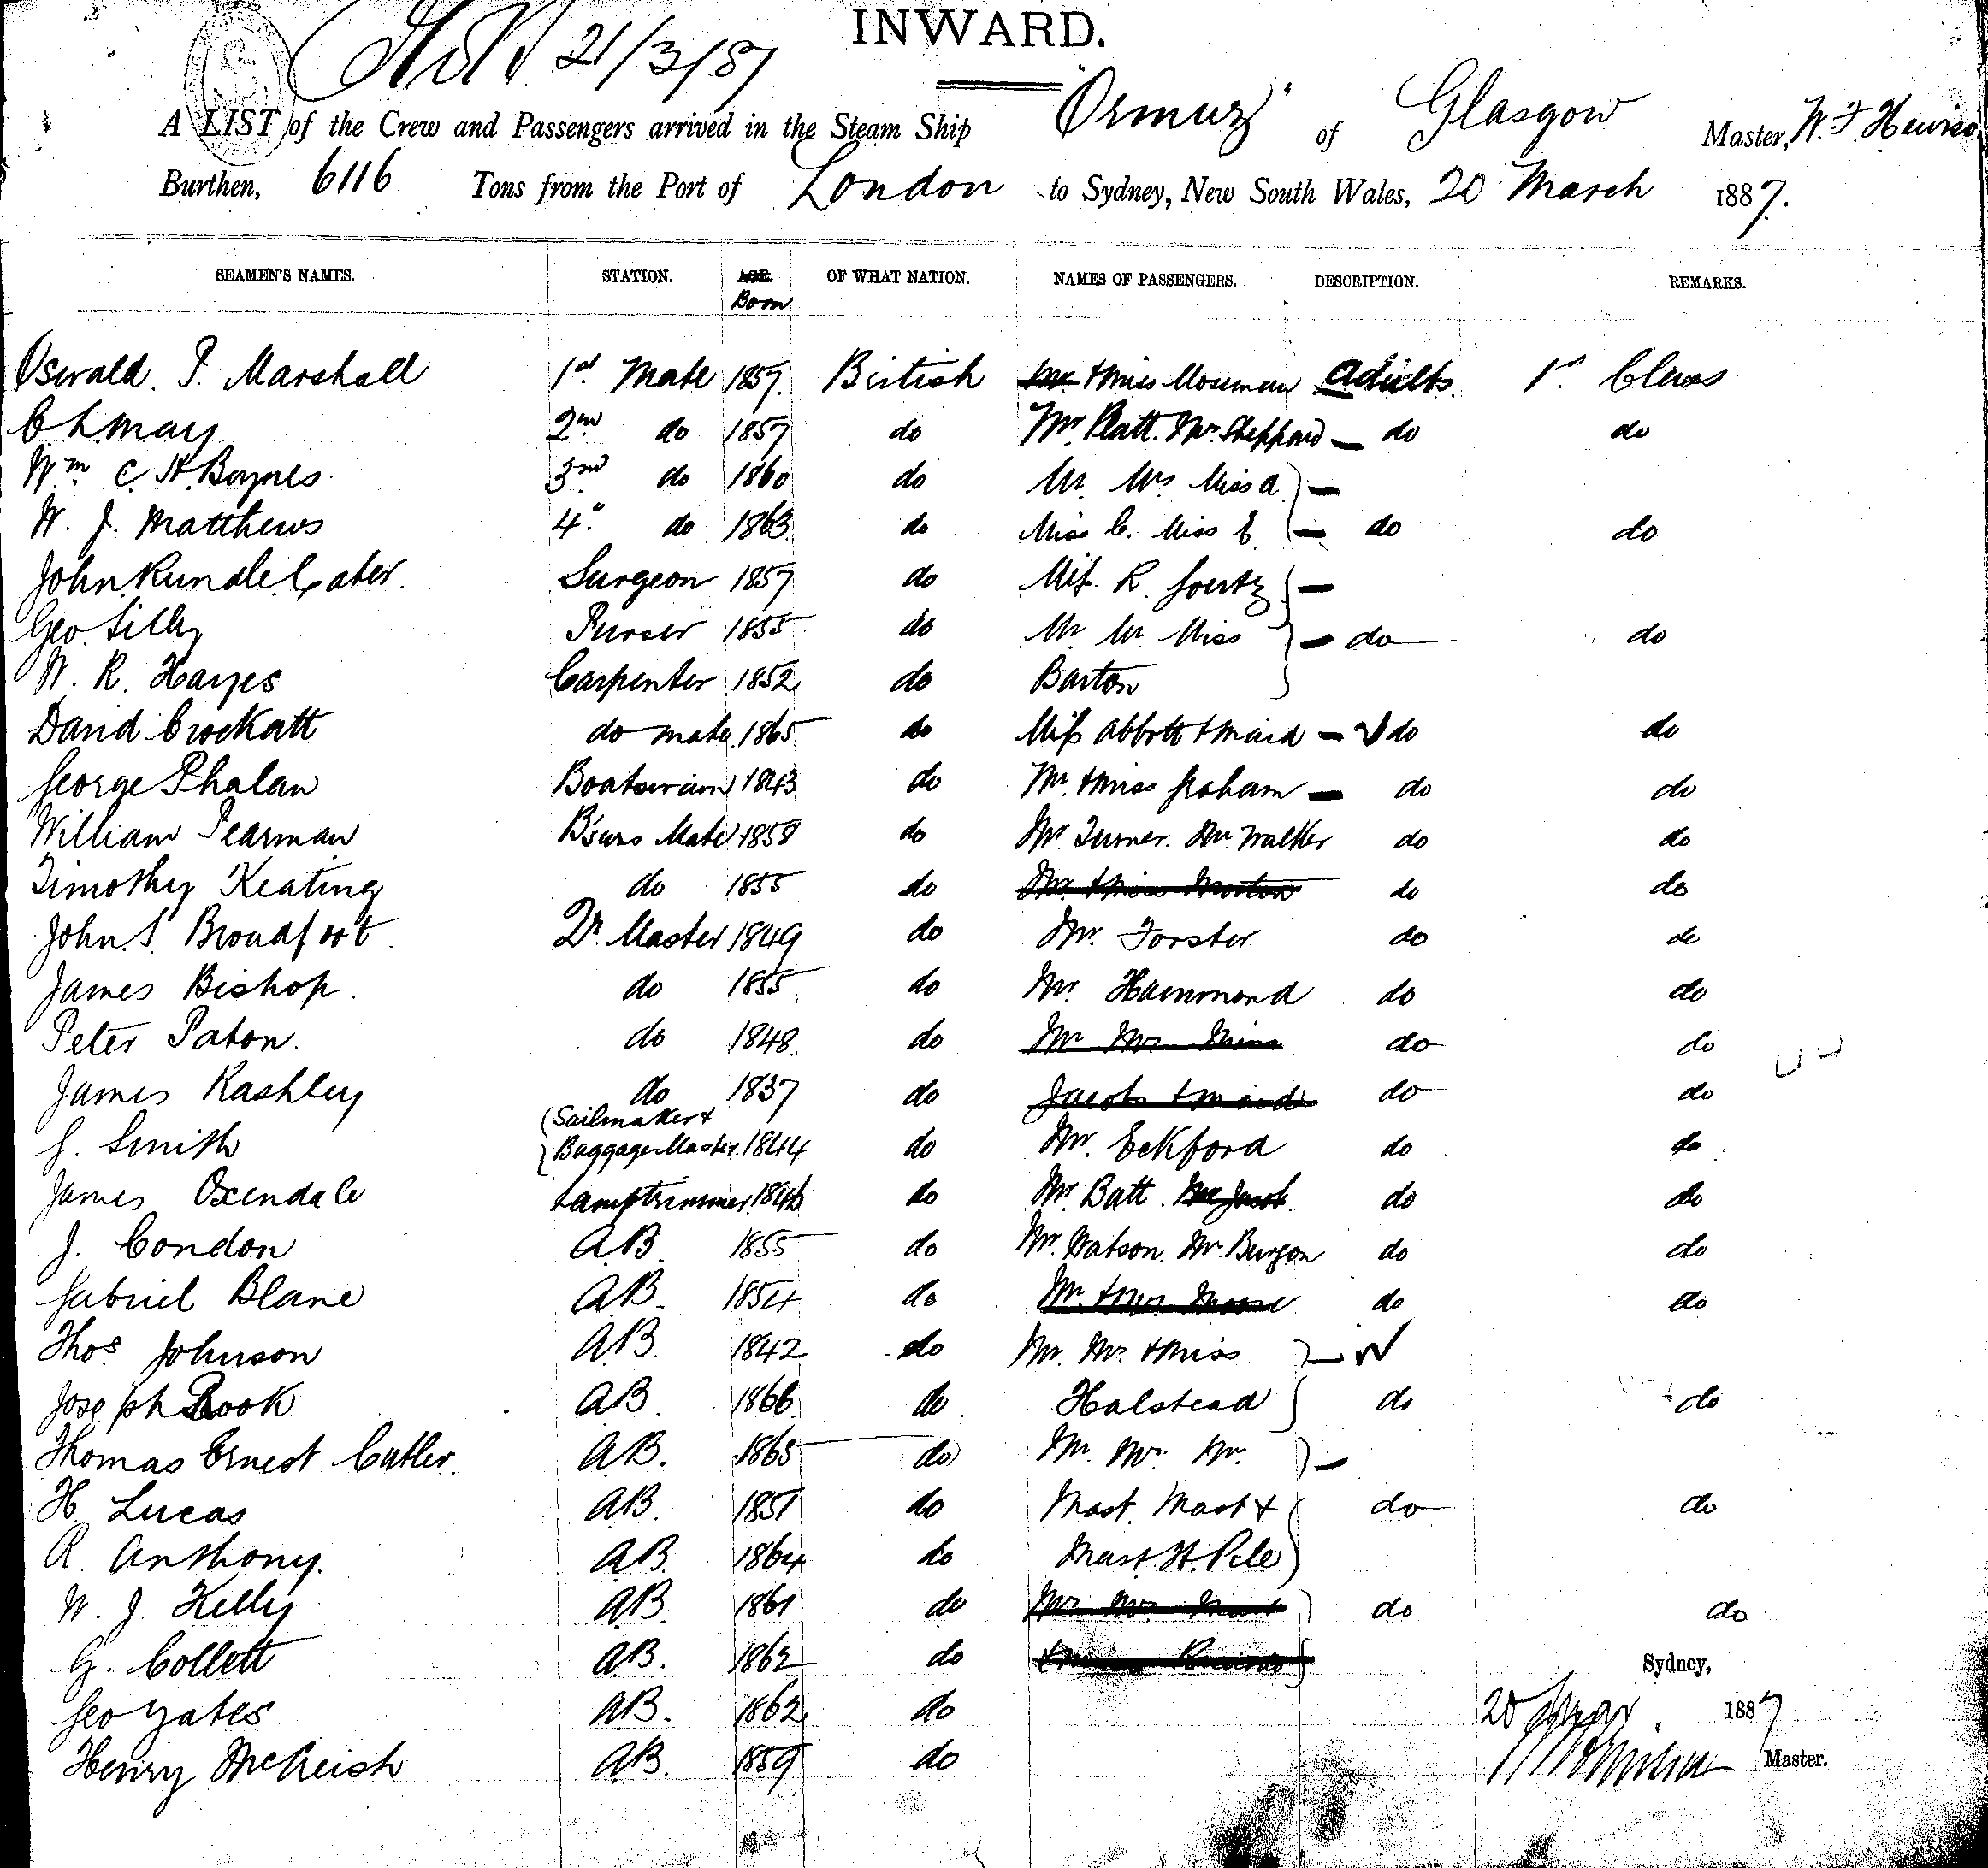 INWARD.
21/3/87
A LIST of the Crew and Passengers arrived in the Steam Ship "Ormuz" of Glasgow Master, W. F. Hewiso
Burthen, 6116 Tons from the Port of London to Sydney, New South Wales, 20 March 1887.
SEAMEN'S NAMES. STATION. AGE. OF WHAT NATION. NAMES OF PASSENGERS. DESCRIPTION. REMARKS.
Born
Oswald. P. Marshall 1st Mate 1857. British Mr + Miss Mosman Adults. 1st Class
C L May 2nd do 1857 do Mr. Platt. Mr. Sheppard — do do
Wm C. H. Boynes. 3rd do 1860 do Mr. Mrs Miss A. —
W. J. Matthews 4th do 1863 do Miss C. Miss E. — do do
John Rundle Cater. Surgeon 1857 do Miss R. Goertz —
Geo. Lilly Purser 1855 do Mr. Mrs Miss — do do
W. R. Hayes Carpenter 1852 do Barton
David Crockatt do mate 1865 do Miss Abbott + maid — do do
George Phalan Boatswain 1843 do Mr. + Miss Graham — do do
William Pearman B'suns Mate 1858 do Mr. Turner. Mr. Walker do do
Timothy Keating do 1855 do Mr. + Miss Morton do do
John. S. Broadfoot Qr. Master 1849 do Mr. Forster do do
James Bishop. do 1855 do Mr. Hammond do do
Peter Paton. do 1848 do Mr Mrs Miss do do
James Rashley do 1837 do Jacobs + maid do do
Sailmaker +
J. Smith Baggage Master. 1844 do Mr. Eckford do do
James Oxendale Lamptrimmer 1846 do Mr. Batt. do do
J. Condon AB 1855 do Mr. Watson. Mr. Burgon do do
Gabriel Blane AB. 1854 do Mr. + Mrs. Moore do do
Thos. Johnson AB. 1842 do Mr. Mrs. + Miss
Joseph Rook AB. 1866 do Halstead do do
Thomas Ernest Cutler. AB. 1865 do Mr. Mrs. Mr. —
H. Lucas AB. 1851 do Mast. Mast + do do
R. Anthony. AB. 1864 do Mast. H. Pile
W. J. Kelly AB. 1861 do do do
G. Collett AB. 1862 do
Sydney,
Geo Yates AB. 1862 do 20 Mar. 1887
Henry McKeish AB. 1859 do Master.